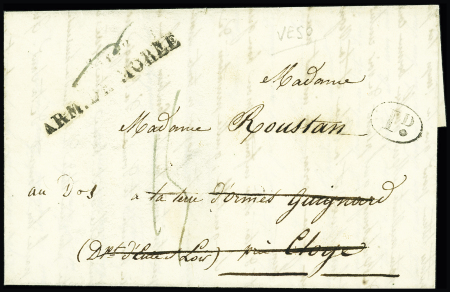 VESO
ARM. DE MORÉE
Madame
Madame Roustan
P.D.
au Dos
à la terre d'Ormes Guignard
(Dpt. d'Eure et Loir) près Cloye